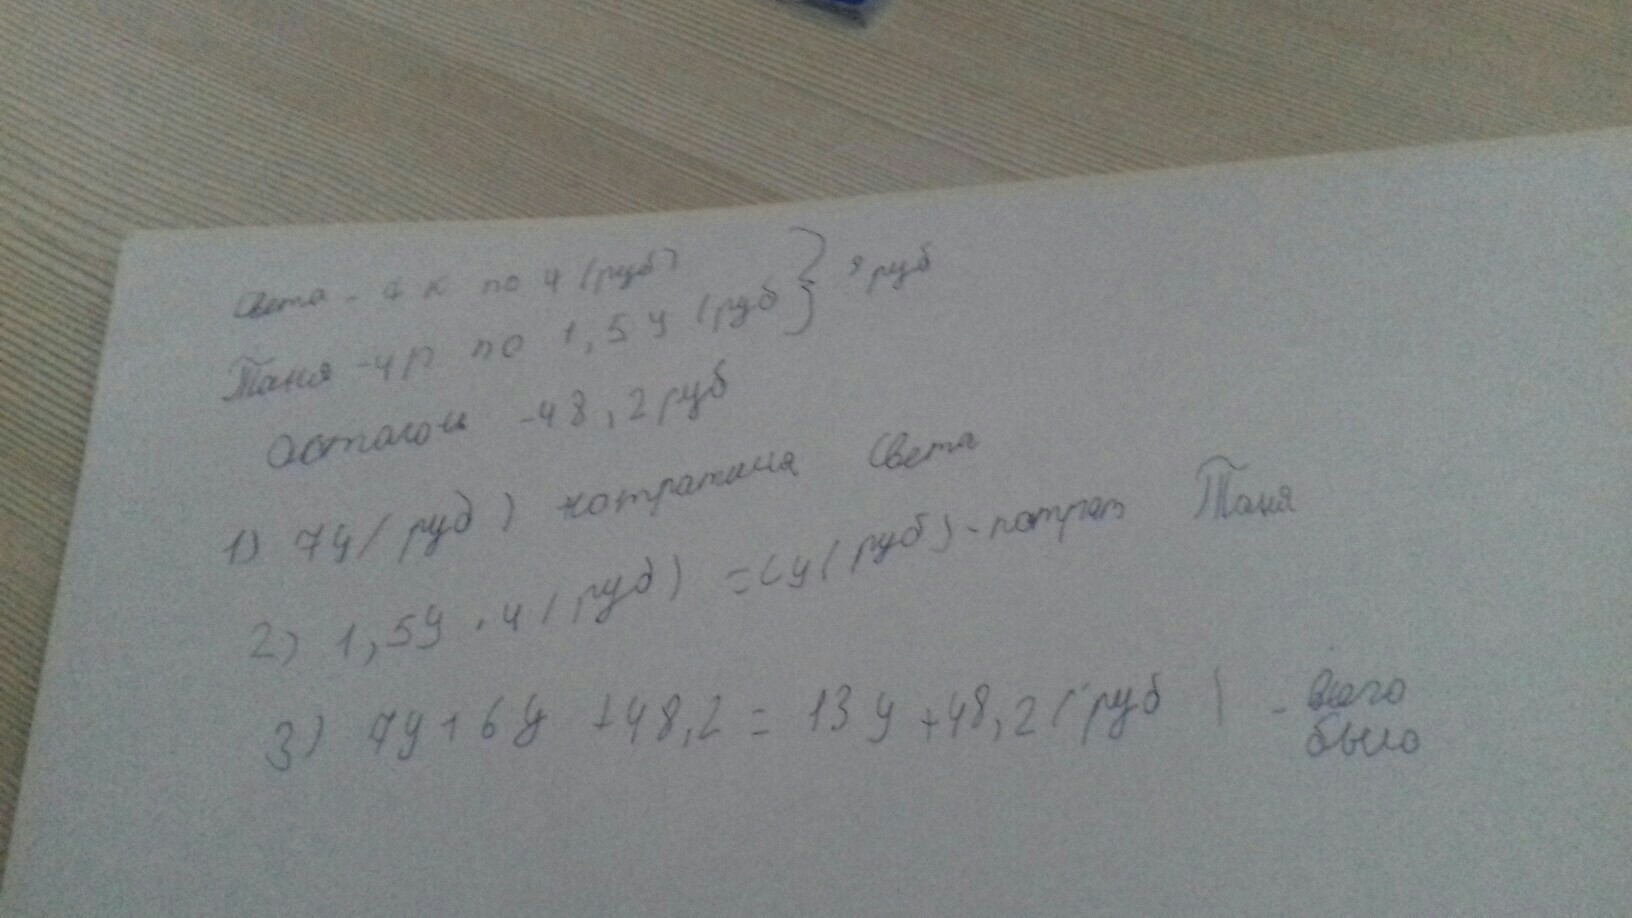 Света - 7 к по у (руб)
Таня - 4 р по 1,5 у (руб } ? руб
Осталось - 48,2 руб
1) 7у (руб) потратила Света
2) 1,5у · 4 (руб) = 6у (руб) - потрат Таня
3) 7у + 6у + 48,2 = 13у + 48,2 (руб) - всего
было